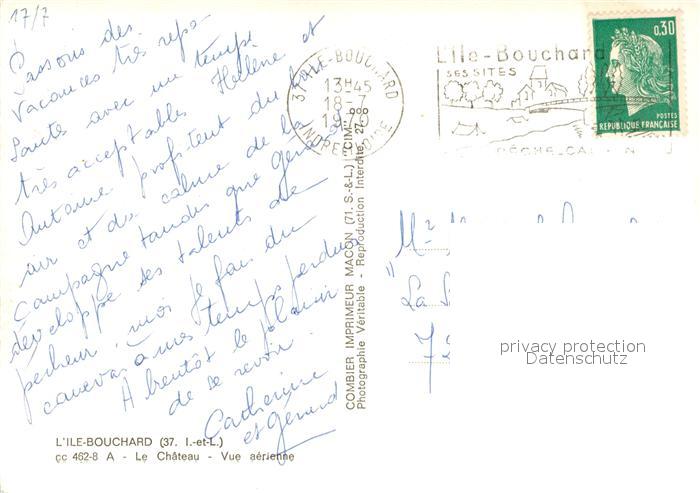 17/7
Passons des
vacances très repo-
santes avec un temps
très acceptable. Hélène et
Antoine profitent du bon
air et du calme de la
campagne tandis que Gérard
développe ses talents de
pêcheur, moi je fais du
canevas à mes temps perdus
A bientôt le plaisir
de se revoir.
Catherine
et Gérard
L'ILE-BOUCHARD (37. I.-et-L.)
cc 462-8 A - Le Château - Vue aérienne
COMBIER IMPRIMEUR MACON (71. S.-&-L.) "CIM"
Photographie Véritable - Reproduction Interdite
37 L'ILE-BOUCHARD
13H45
18-7
INDRE-ET-LOIRE
L'Ile-Bouchard
SES SITES
PÊCHE
0,30
POSTES
REPUBLIQUE FRANÇAISE
La
privacy protection
Datenschutz